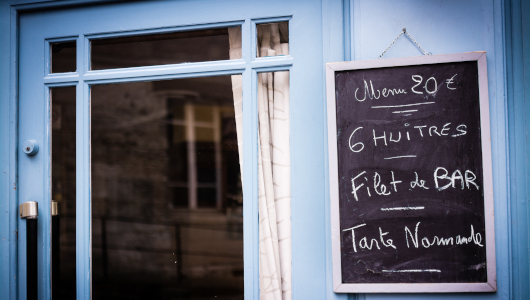 Menu 20 €
6 HUITRES
Filet de BAR
Tarte Normande